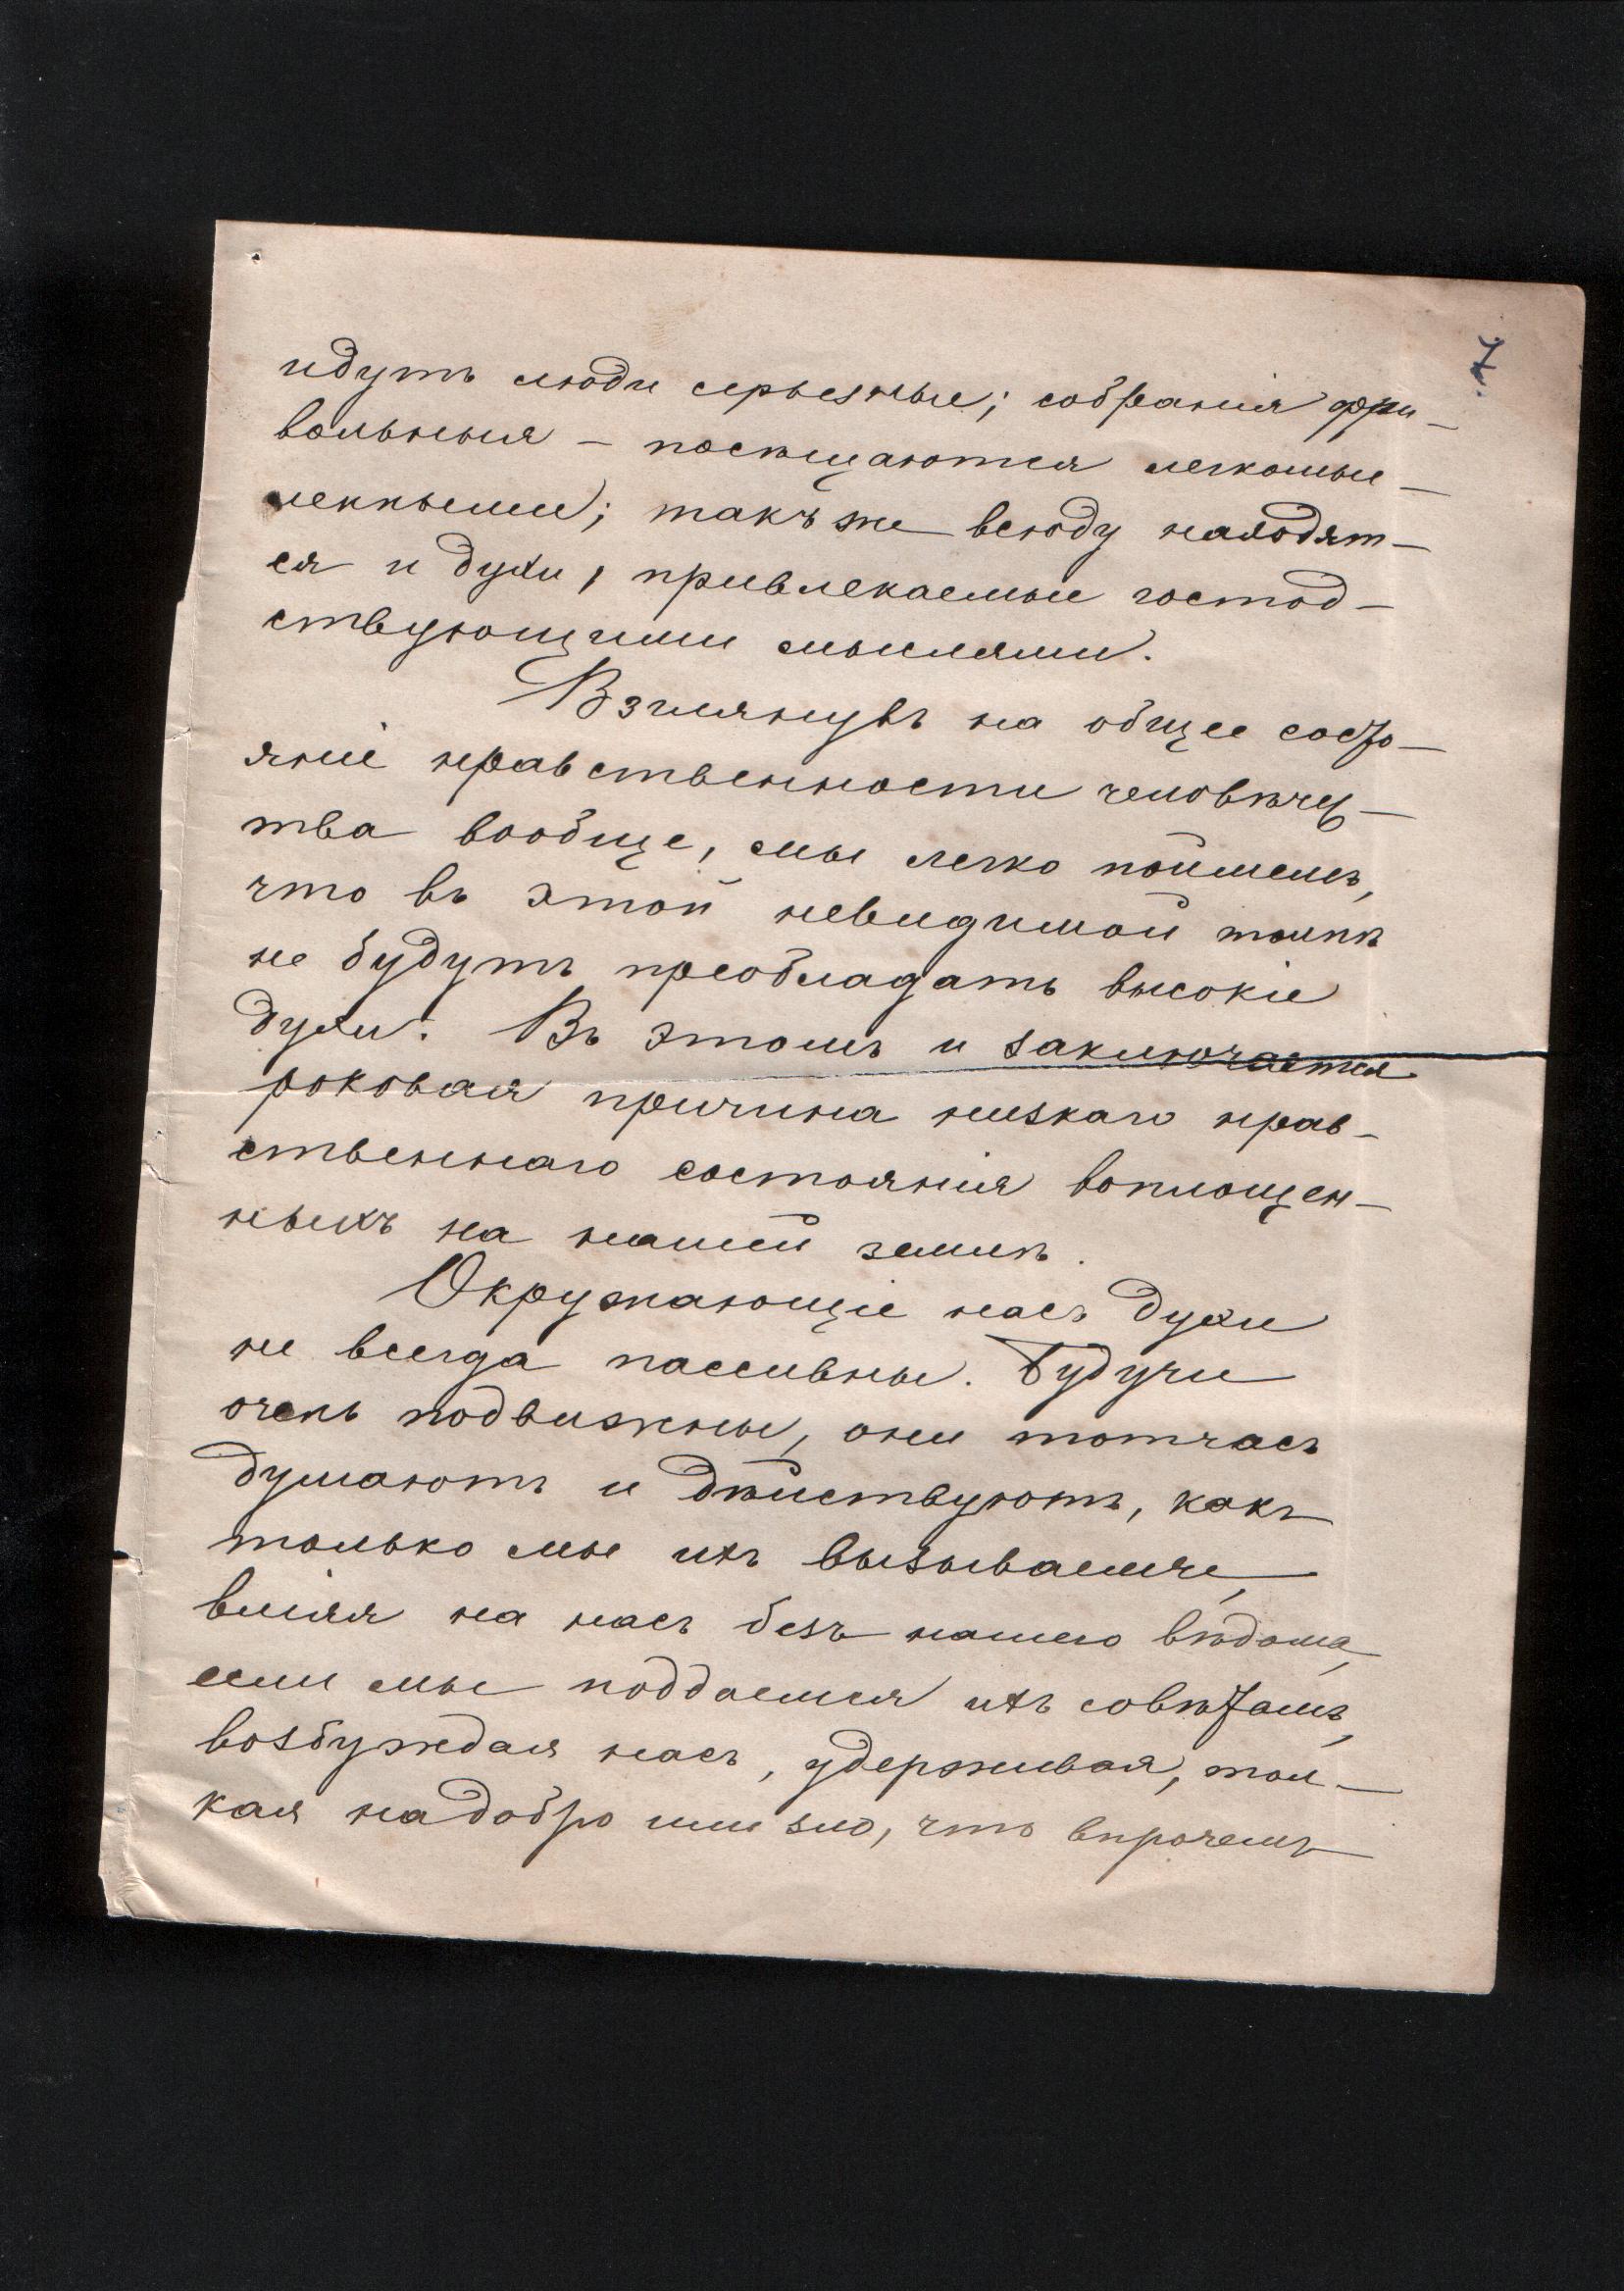 7.
идутъ люди серьезные; собранія фри-
вольныя — посѣщаются легкомыс-
ленными; такъ же всюду находят-
ся и духи, привлекаемые господ-
ствующими мыслями.
Взглянувъ на общее состо-
яніе нравственности человѣчес-
тва вообще, мы легко поймемъ,
что въ этой невидимой толпѣ
не будутъ преобладать высокіе
духи. Въ этомъ и заключается
роковая причина низкаго нрав-
ственнаго состоянія воплощен-
ныхъ на нашей землѣ.
Окружающіе насъ духи
не всегда пассивны. Будучи
очень подвижны, они тотчасъ
думаютъ и дѣйствуютъ, какъ
только мы ихъ вызываемъ,
вліяя на насъ безъ нашего вѣдома,
если мы поддаемся ихъ совѣтамъ,
возбуждая насъ, удерживая, тол-
кая на добро или зло, что впрочемъ